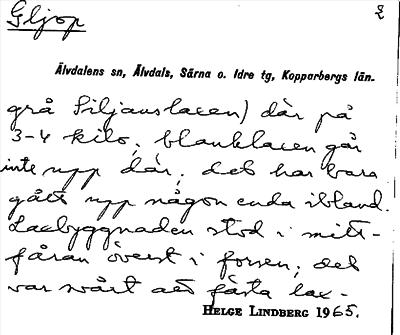 Gljop
2
Älvdalens sn, Älvdals, Särna o. Idre tg, Kopparbergs län.
grå Siljanslaxen) där på
3-4 kilo; blanklaxen går
inte upp där; det har bara
gått upp någon enda ibland.
Laxbyggnaden stod i mitt-
fåran överst i forsen; det
var svårt att fästa lax-
HELGE LINDBERG 1965.